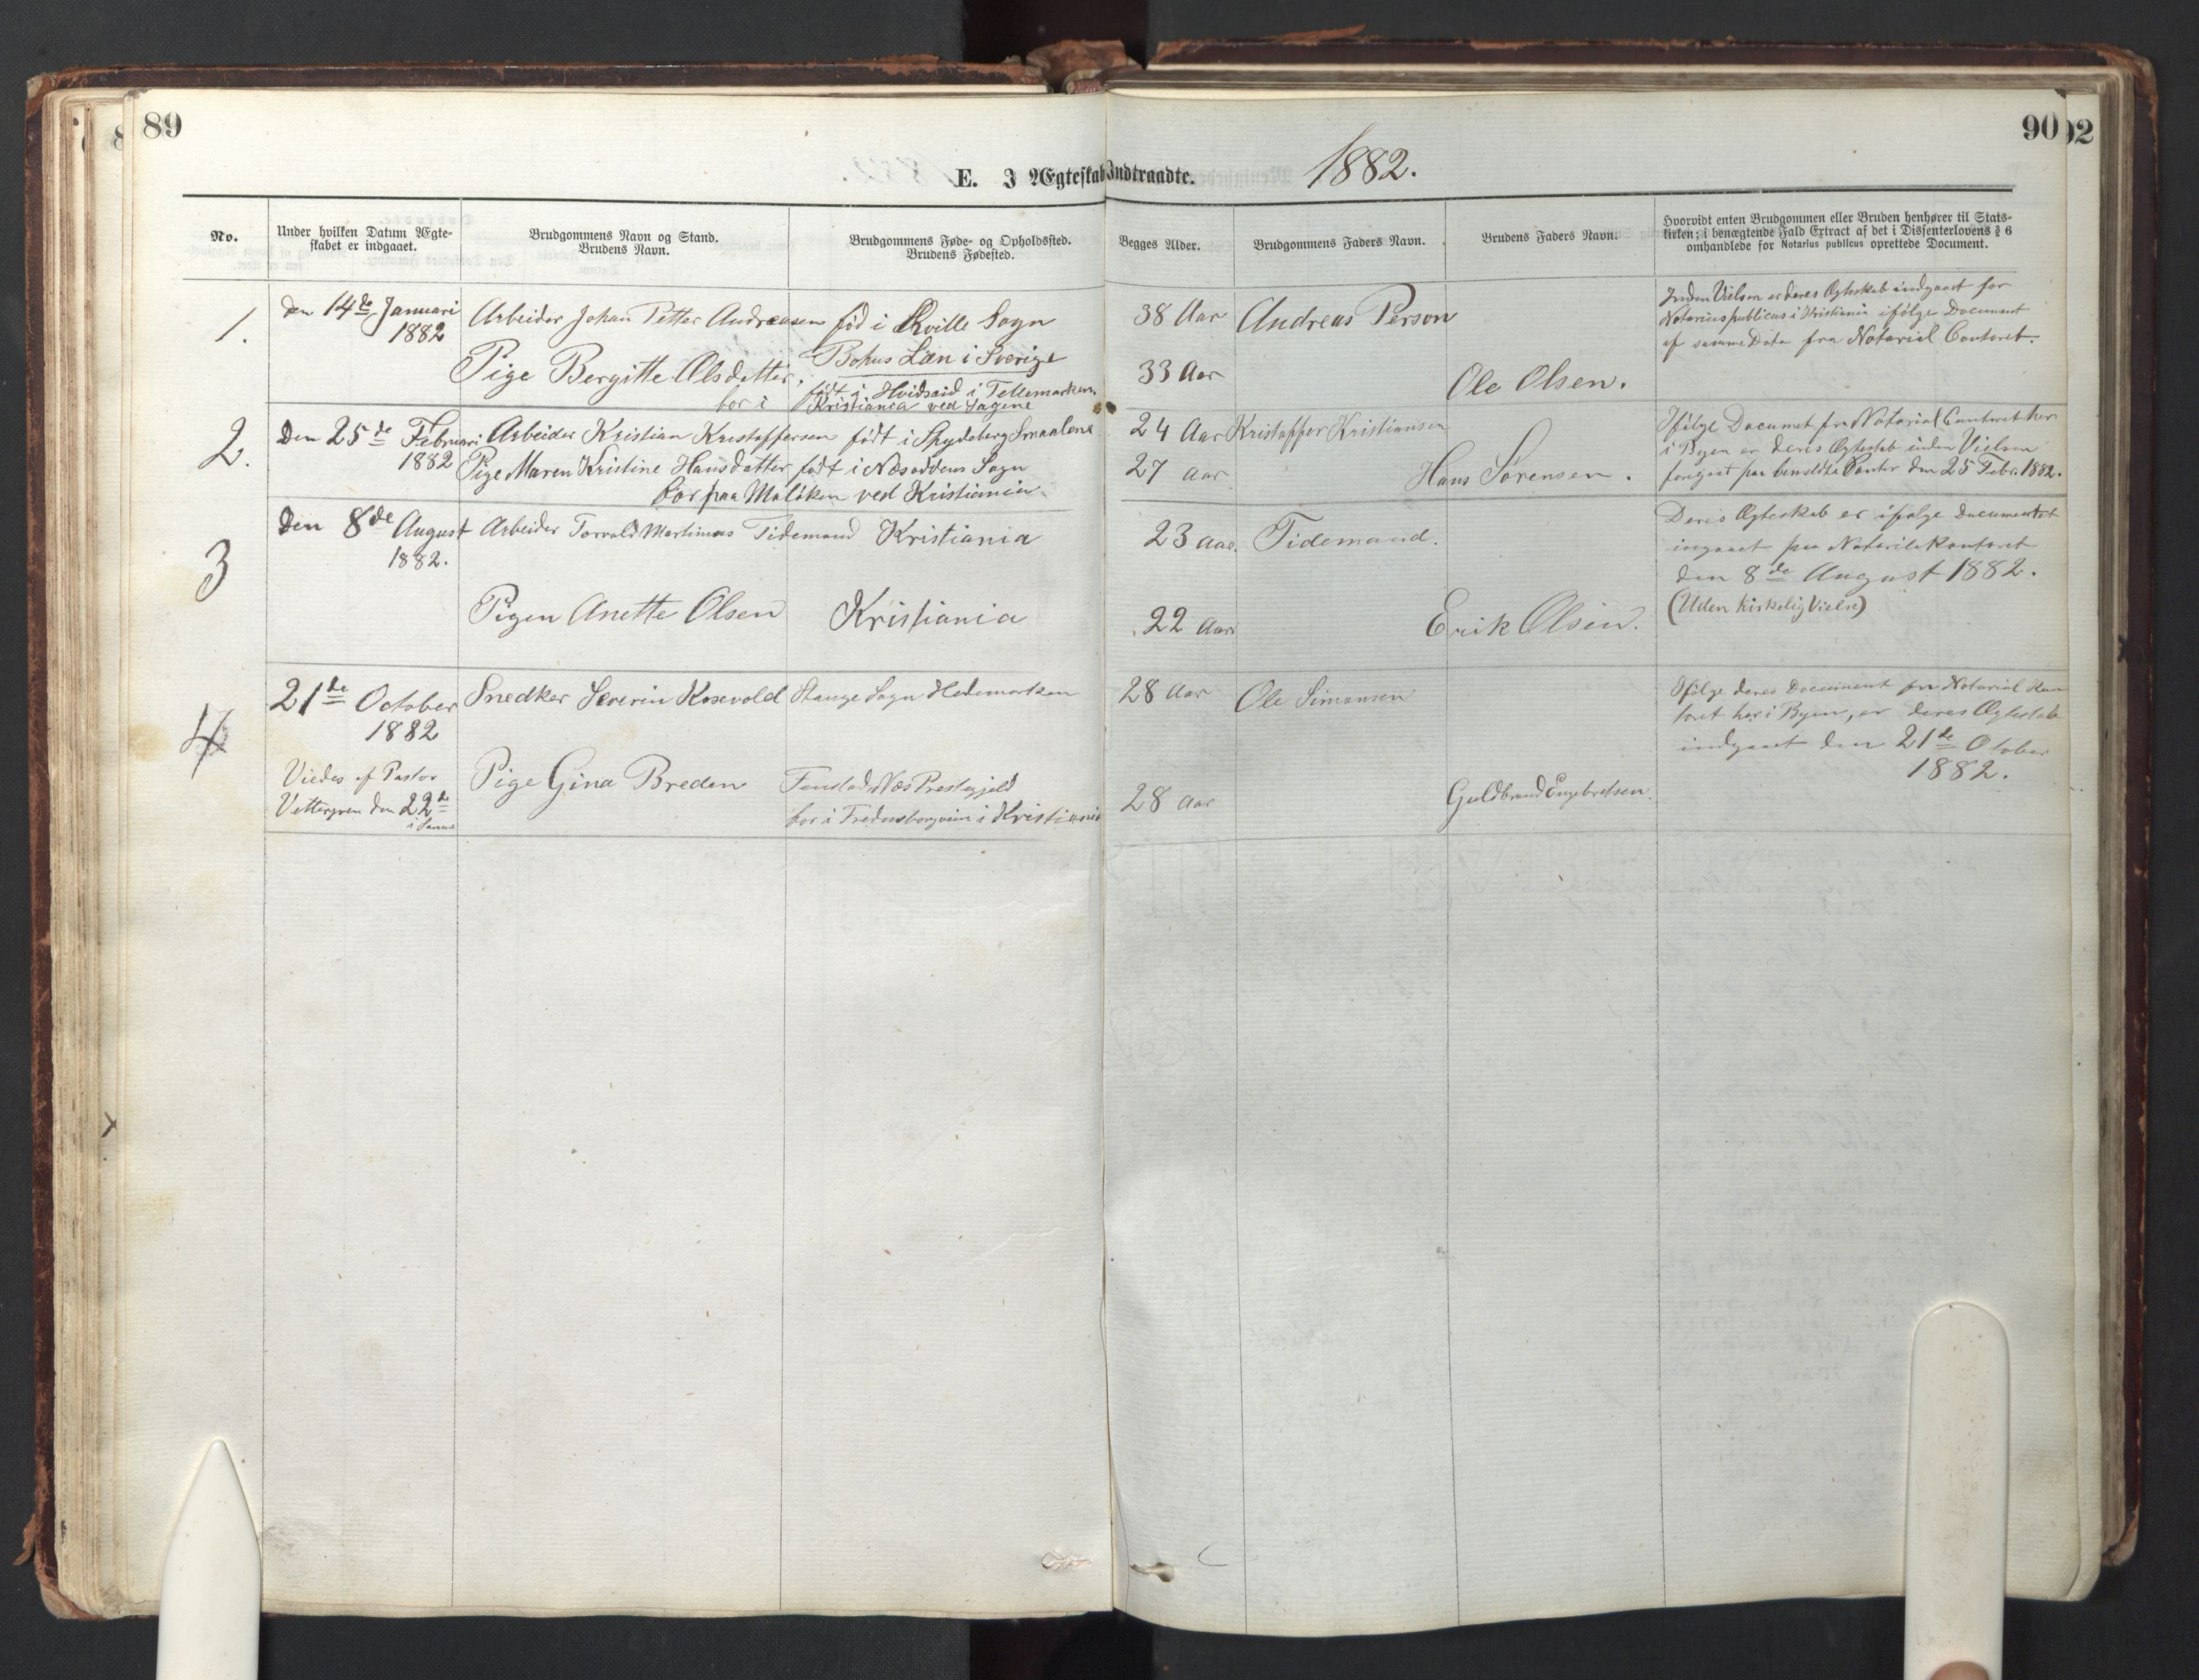 89
90
92
E. I Ægteskab Indtraadte. 1882.
No.
Under hvilken Datum Ægte-
skabet er indgaaet.
Brudgommens Navn og Stand.
Brudens Navn.
Brudgommens Føde- og Opholdssted.
Brudens Fødested.
Begges Alder.
Brudgommens Faders Navn.
Brudens Faders Navn.
Hvorvidt enten Brudgommen eller Bruden henhører til Stats-
kirken; i benægtende Fald Extract af det i Dissenterlovens § 6
omhandlede for Notarius publicus oprettede Document.
1.
den 14de Januari
1882
Arbeider Johan Petter Andreasen
Pige Bergitte Olsdatter,
bor i
fød i Qville Sogn
Bohus Län i Sverige
født i Hvidseid i Tellemarken
Kristiania ved Sagene
38 Aar
33 Aar
Andreas Person
Ole Olsen.
Inden Vielsen er deres Ægteskab indgaaet for
Notarius publicus i Kristiania ifølge Document
af samme Dato fra Notarial Contoret.
2.
Den 25de Februari
1882
Arbeider Kristian Kristoffersen
Pige Maren Kristine Hansdatter
født i Spydeberg Smaalene
født i Næsoddens Sogn
bor paa Maløken ved Kristiania.
24 Aar
27 aar
Kristoffer Kristiansen
Hans Sørensen.
Ifølge Documet fra Notarial Contoret her
i Byen er deres Ægteskab inden Vielsen
foregaat paa bemeldte Contor den 25 Febr. 1882.
3
Den 8de August
1882.
Arbeider Torvald Martinus Tidemand
Pigen Anette Olsen
Kristiania
Kristiania
23 aar.
22 Aar
Tidemand.
Erik Olsen.
Deres Ægteskab er ifølge Documentet
ingaaet paa Notarilekontoret
den 8de August 1882.
(Uden kirkelig Vielse)
4
21de October
1882
Viedes af Pastor
Vettergren den 22de
i samme
Snedker Severin Rosevold
Pige Gina Breden
Stange Sogn Hedemarken
Næs Prestegjeld
bor i Fredensborgveien i Kristiania
28 Aar
28 aar
Ole Simonsen
Guldbrand Engebretsen.
Ifølge deres Document fra Notarial Kon
toret her i Byen, er deres Ægteskab
indgaaet den 21de Otober
1882.